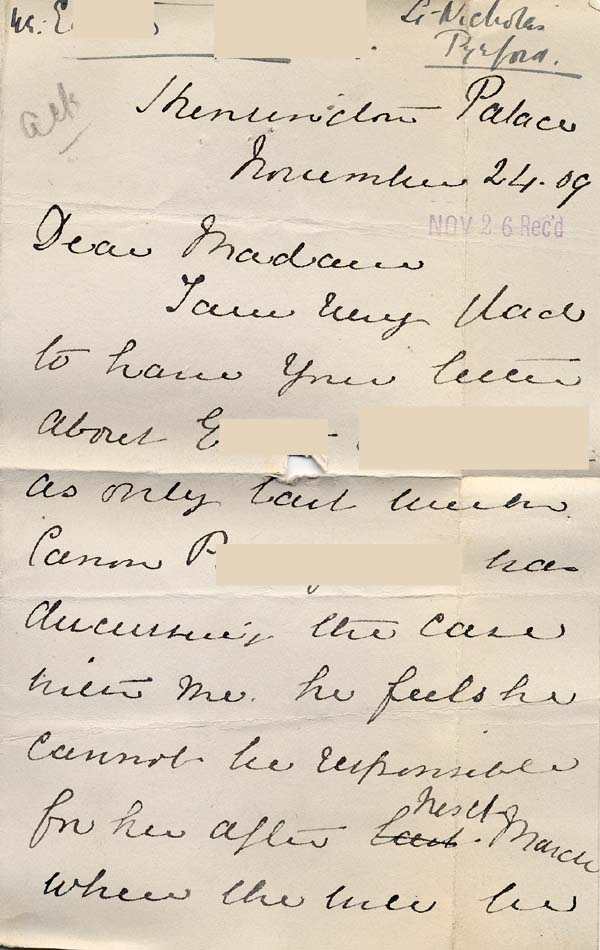 St. Nicholas
Pyrford.
ack
Kensington Palace
November 24. 09
NOV 26 Rec'd
Dear Madam
I am very glad
to have your letter
about E
as only last week
Canon P has
discussing the case
with me. he feels he
cannot be responsible
for her after last next March
when she will be